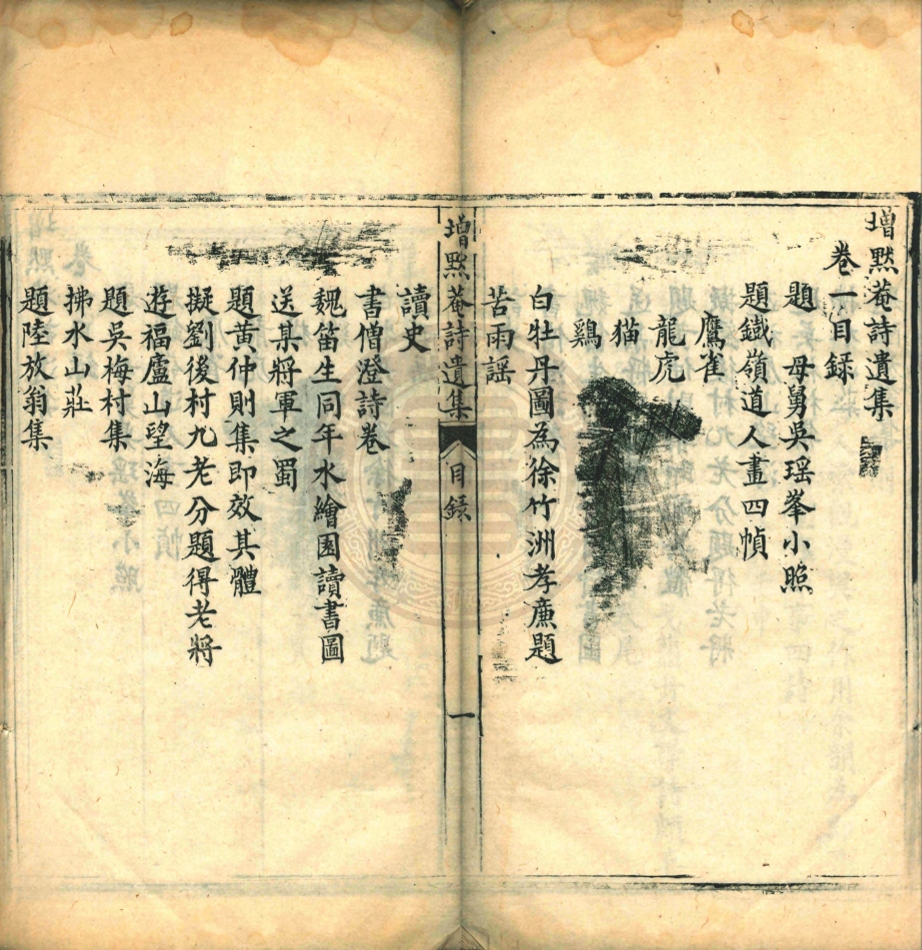 增默菴詩遺集
卷一目録
題　母舅吳瑶峯小照
題鐵嶺道人畫四幀
鷹雀
龍虎
猫
鷄
白牡丹圖為徐竹洲孝廉題
苦雨謡
增默菴詩遺集　目録　一
讀史
書僧澄詩卷
魏笛生同年水繪園讀書圖
送某將軍之蜀
題黄仲則集即效其體
擬劉後村九老分題得老將
遊福盧山望海
題吳梅村集
拂水山莊
題陸放翁集